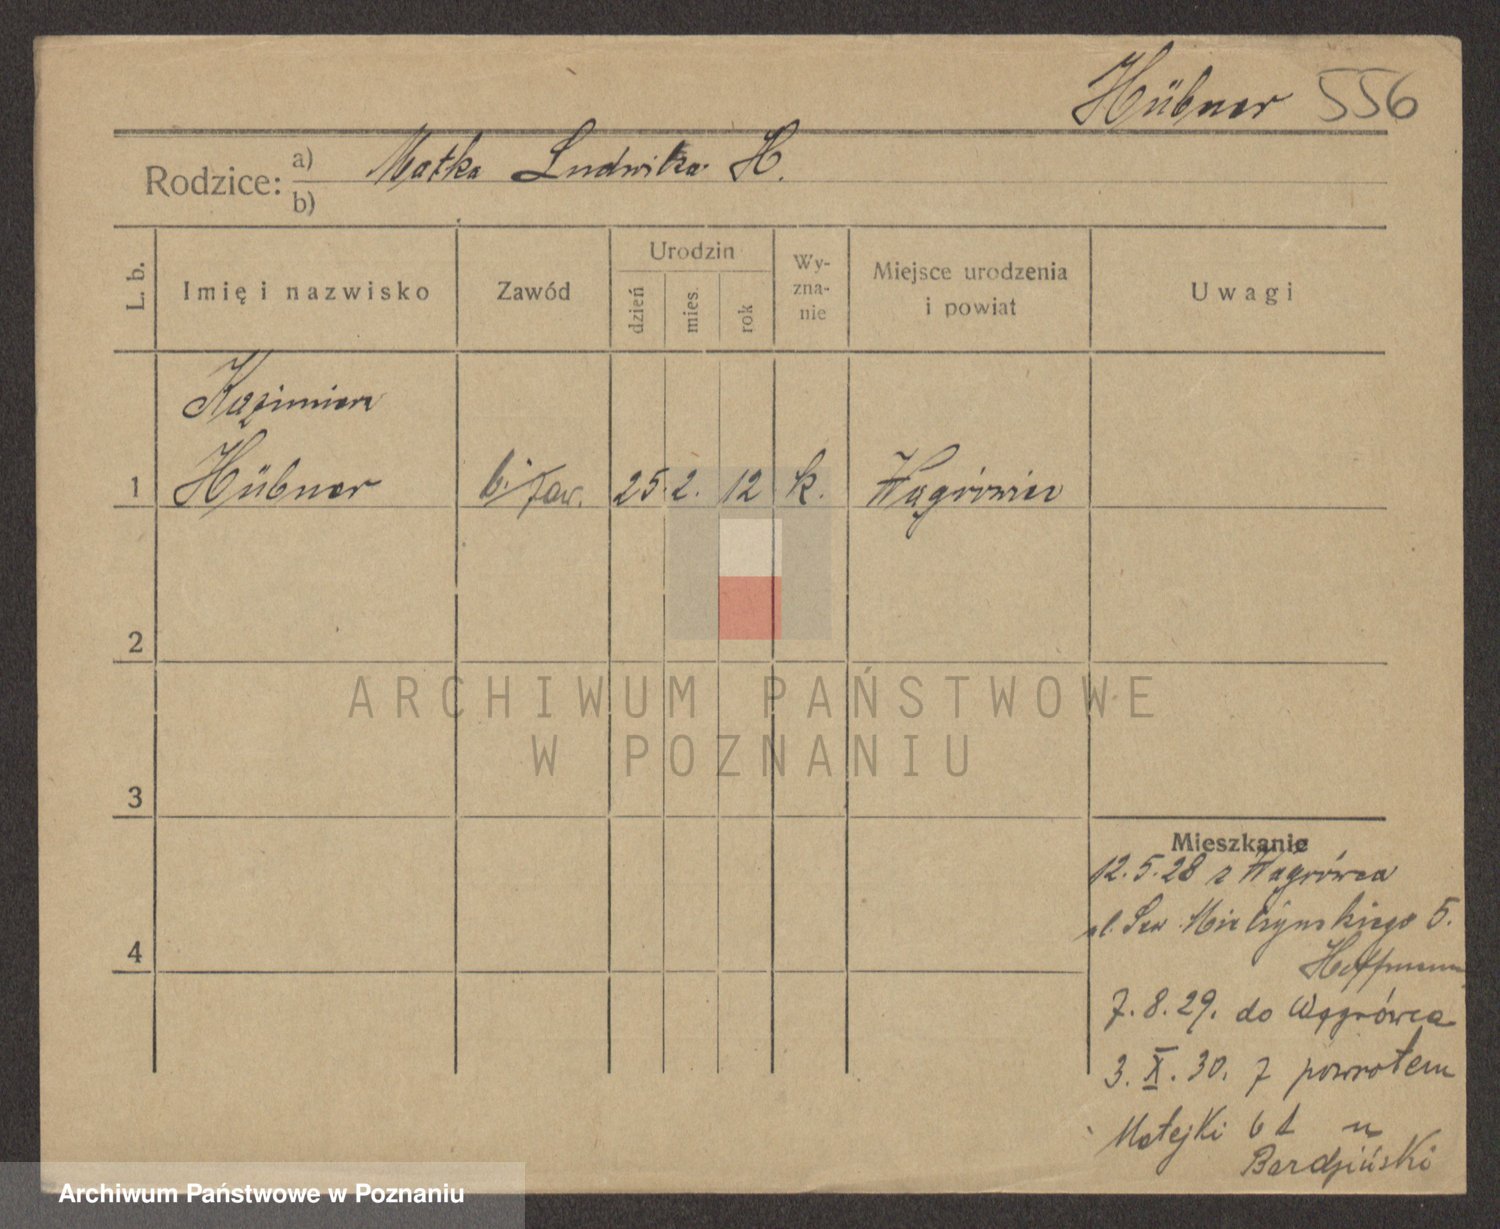 Hübner 556
Rodzice: a) Matka Ludwika H.
b)
L. b.
Imię i nazwisko
Zawód
Urodzin
dzień
mies.
rok
Wy-
zna-
nie
Miejsce urodzenia
i powiat
Uwagi
Kazimierz
1 Hübner b. zaw. 25. 2. 12 k. Wągrówiec
2
3
4
ARCHIWUM PAŃSTWOWE
W POZNANIU
Mieszkanie
12.5.28 z Wągrówca
Sew. Mielżyńskiego 5.
Hoffmann
7.8.29. do Wągrówca
3. X. 30. z powrotem
Matejki 61 u
Bardziński
Archiwum Państwowe w Poznaniu